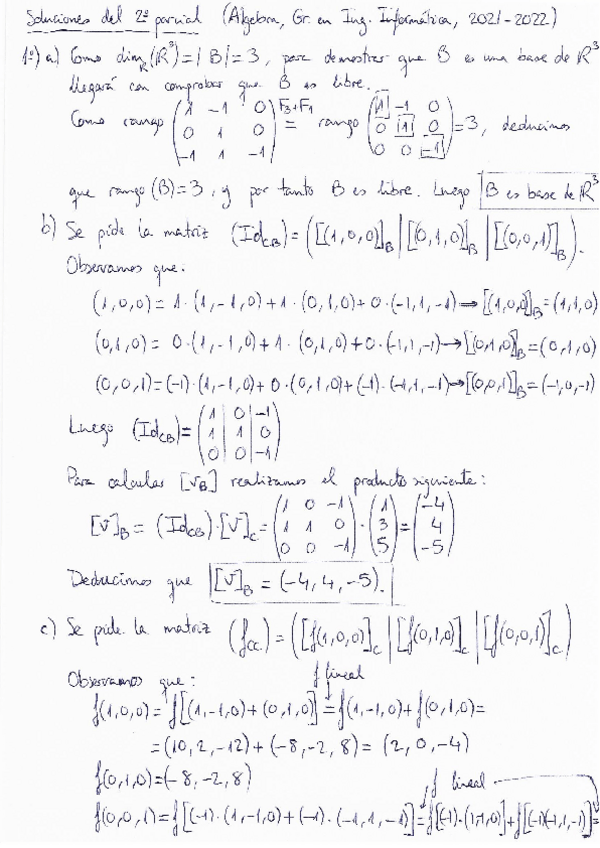 Soluciones del 2º parcial (Álgebra, Gr. en Ing. Informática, 2021-2022)
1º) a) Como dim_R(R³)=|B|=3, para demostrar que B es una base de R³
llegará con comprobar que B es libre.
Como rango (1 -1 0; 0 1 0; -1 1 -1) =^{F3+F1} rango (1 -1 0; 0 1 0; 0 0 -1) = 3, deducimos
que rango (B)=3, y por tanto B es libre. Luego B es base de R³
b) Se pide la matriz (Id_CB)=([(1,0,0)]_B | [(0,1,0)]_B | [(0,0,1)]_B).
Observamos que:
(1,0,0)=1·(1,-1,0)+1·(0,1,0)+0·(-1,1,-1)→[(1,0,0)]_B=(1,1,0)
(0,1,0)=0·(1,-1,0)+1·(0,1,0)+0·(-1,1,-1)→[(0,1,0)]_B=(0,1,0)
(0,0,1)=(-1)·(1,-1,0)+0·(0,1,0)+(-1)·(-1,1,-1)→[(0,0,1)]_B=(-1,0,-1)
Luego (Id_CB)=(1 | 0 | -1; 1 | 1 | 0; 0 | 0 | -1)
Para calcular [v_B] realizamos el producto siguiente:
[v]_B = (Id_CB)·[v]_C = (1 0 -1; 1 1 0; 0 0 -1)·(1; 3; 5)=(-4; 4; -5)
Deducimos que [v]_B = (-4, 4, -5).
c) Se pide la matriz (f_CC)=([f(1,0,0)]_C | [f(0,1,0)]_C | [f(0,0,1)]_C)
f lineal
Observamos que:
f(1,0,0)=f[(1,-1,0)+(0,1,0)]=f(1,-1,0)+f(0,1,0)=
=(10,2,-12)+(-8,-2,8)=(2,0,-4)
f(0,1,0)=(-8,-2,8)
f lineal
f(0,0,1)=f[(-1)·(1,-1,0)+(-1)·(-1,1,-1)]=f[(-1)·(1,-1,0)]+f[(-1)(-1,1,-1)]=